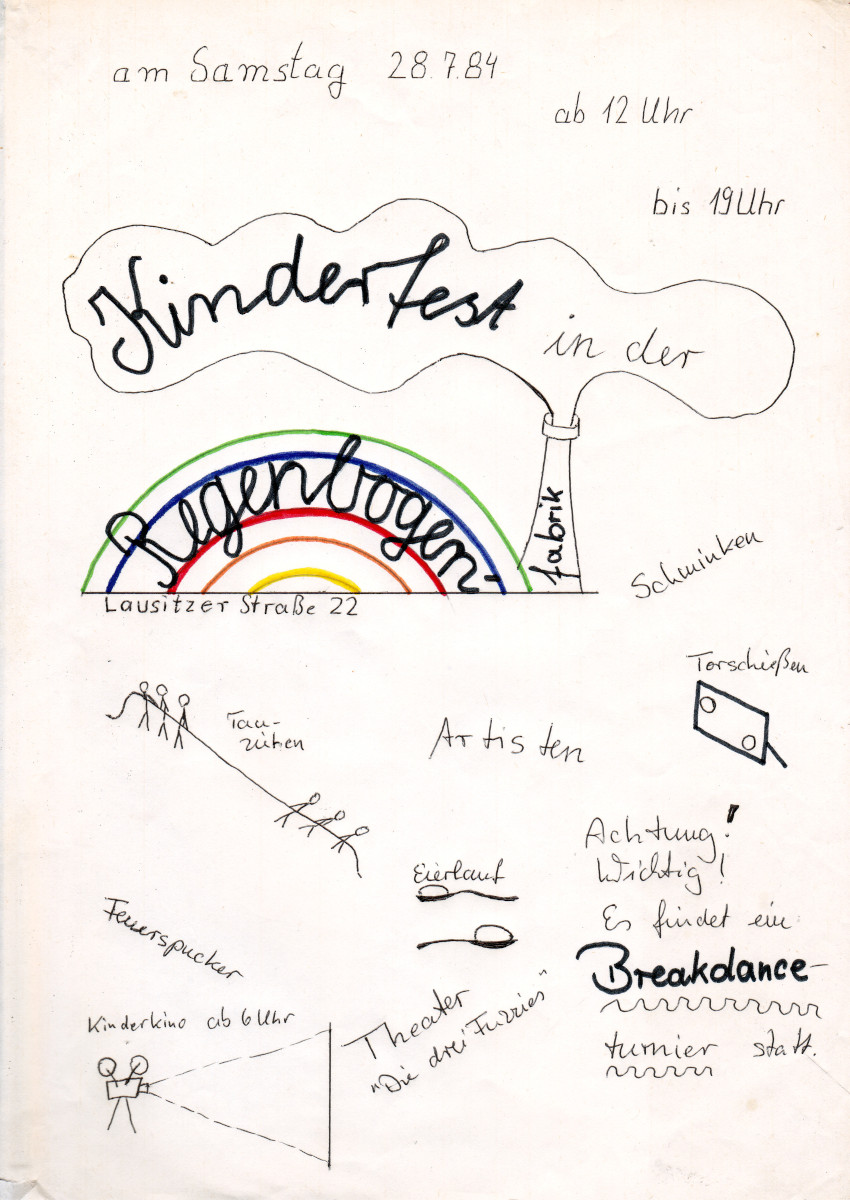 am Samstag 28.7.84
ab 12 Uhr
bis 19 Uhr
Kinderfest in der
Regenbogen-
fabrik
Lausitzer Straße 22
Schminken
Torschießen
Tau-
ziehen
Artisten
Achtung!
Wichtig!
Es findet ein
Breakdance-
turnier statt.
Eierlauf
Feuerspucker
Kinderkino ab 6 Uhr
Theater
"Die drei Furries"